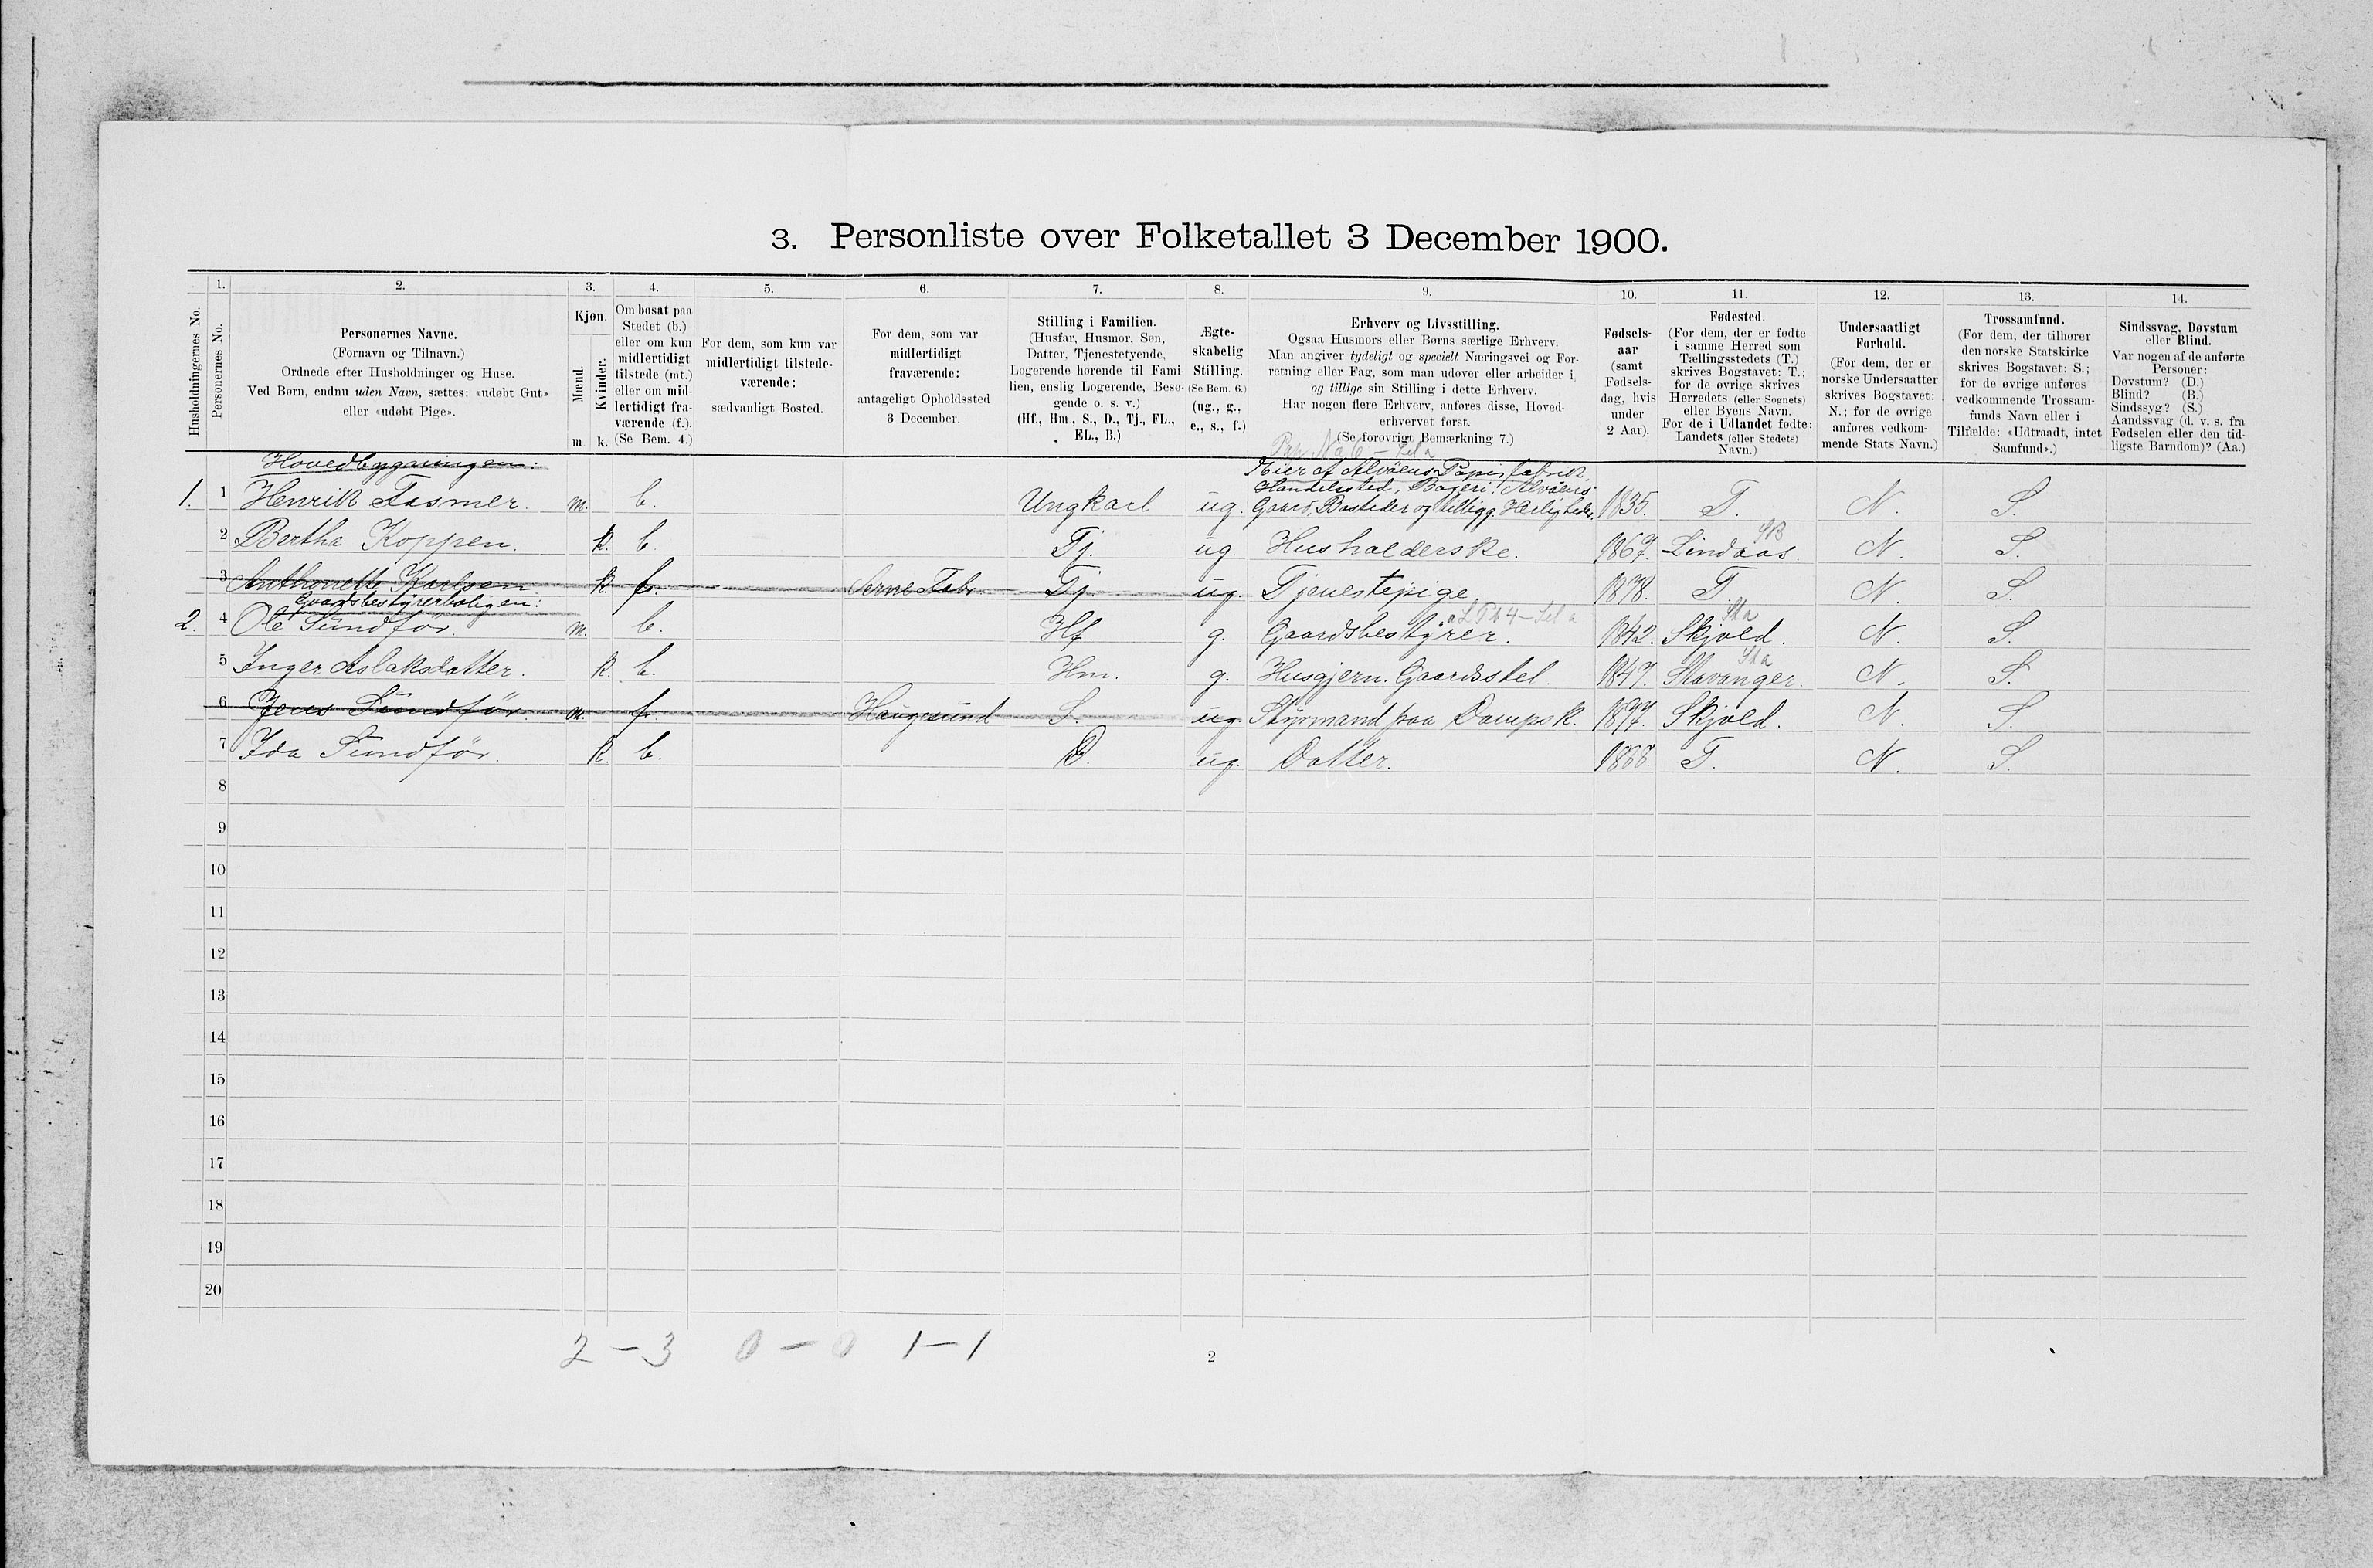 3. Personliste over Folketallet 3 December 1900.
1. 2. 3. 4. 5. 6. 7. 8. 9. 10. 11. 12. 13. 14.
Husholdningernes No.
Personernes No.
Personernes Navne.
(Fornavn og Tilnavn.)
Ordnede efter Husholdninger og Huse.
Ved Børn, endnu uden Navn, sættes: «udøbt Gut»
eller «udøbt Pige».
Kjøn.
Mænd.
Kvinder.
m. k.
Om bosat paa
Stedet (b.)
eller om kun
midlertidigt
tilstede (mt.)
eller om mid-
lertidigt fra-
værende (f.).
(Se Bem. 4.)
For dem, som kun var
midlertidigt tilstede-
værende:
sædvanligt Bosted.
For dem, som var
midlertidigt
fraværende:
antageligt Opholdssted
3 December.
Stilling i Familien.
(Husfar, Husmor, Søn,
Datter, Tjenestetyende,
Logerende hørende til Fami-
lien, enslig Logerende, Besø-
gende o. s. v.)
(Hf., Hm., S., D., Tj., FL.,
EL., B.)
Ægte-
skabelig
Stilling.
(Se Bem. 6.)
(ug., g.,
e., s., f.)
Erhverv og Livsstilling.
Ogsaa Husmors eller Børns særlige Erhverv.
Man angiver tydeligt og specielt Næringsvei og For-
retning eller Fag, som man udøver eller arbeider i,
og tillige sin Stilling i dette Erhverv.
Har nogen flere Erhverv, anføres disse, Hoved-
erhvervet først.
(Se forøvrigt Bemærkning 7.)
Fødsels-
aar
(samt
Fødsels-
dag, hvis
under
2 Aar).
Fødested.
(For dem, der er fødte
i samme Herred som
Tællingsstedets (T.)
skrives Bogstavet: T.;
for de øvrige skrives
Herredets (eller Sognets)
eller Byens Navn.
For de i Udlandet fødte:
Landets (eller Stedets)
Navn.)
Undersaatligt
Forhold.
(For dem, der er
norske Undersaatter
skrives Bogstavet:
N.; for de øvrige
anføres vedkom-
mende Stats Navn.)
Trossamfund.
(For dem, der tilhører
den norske Statskirke
skrives Bogstavet: S.;
for de øvrige anføres
vedkommende Trossam-
funds Navn eller i
Tilfælde: «Udtraadt, intet
Samfund».)
Sindssvag, Døvstum
eller Blind.
Var nogen af de anførte
Personer:
Døvstum? (D.)
Blind? (B.)
Sindssyg? (S.)
Aandssvag (d. v. s. fra
Fødselen eller den tid-
ligste Barndom)? (Aa.)
Hovedbygningen:
Eier af Alvøens Papirfabrik,
Handelssted, Bageri. Alvøens
1. 1 Henrik Fasmer. m. b. Ungkarl ug. Gaard, Bosteder og tilligg. Herligheder. 1835. T. N. S.
SB
2 Bertha Koppen. k. b. Tj. ug. Husholderske. 1867. Lindaas. N. S.
3 Anthonette Karlsen k. f. Arne Fabr Tj. ug. Tjenestepige. 1878. T. N. S.
Gaardsbestyrerboligen:
Sta
2. 4 Ole Sundför. m. b. Hf. g. Gaardsbestyrer. 1842. Skjold. N. S.
Sta
5 Inger Aslaksdatter. k. b. Hm. g. Husgjern. Gaardsstel. 1847. Stavanger. N. S.
6 Jens Sundför. m. f. Haugesund S. ug. Styrmand paa Dampsk. 1877. Skjold. N. S.
7 Ida Sundför. k. b. D. ug. Datter. 1888. T. N. S.
8
9
10
11
12
13
14
15
16
17
18
19
20
2 – 3 0 – 0 1 – 1
2